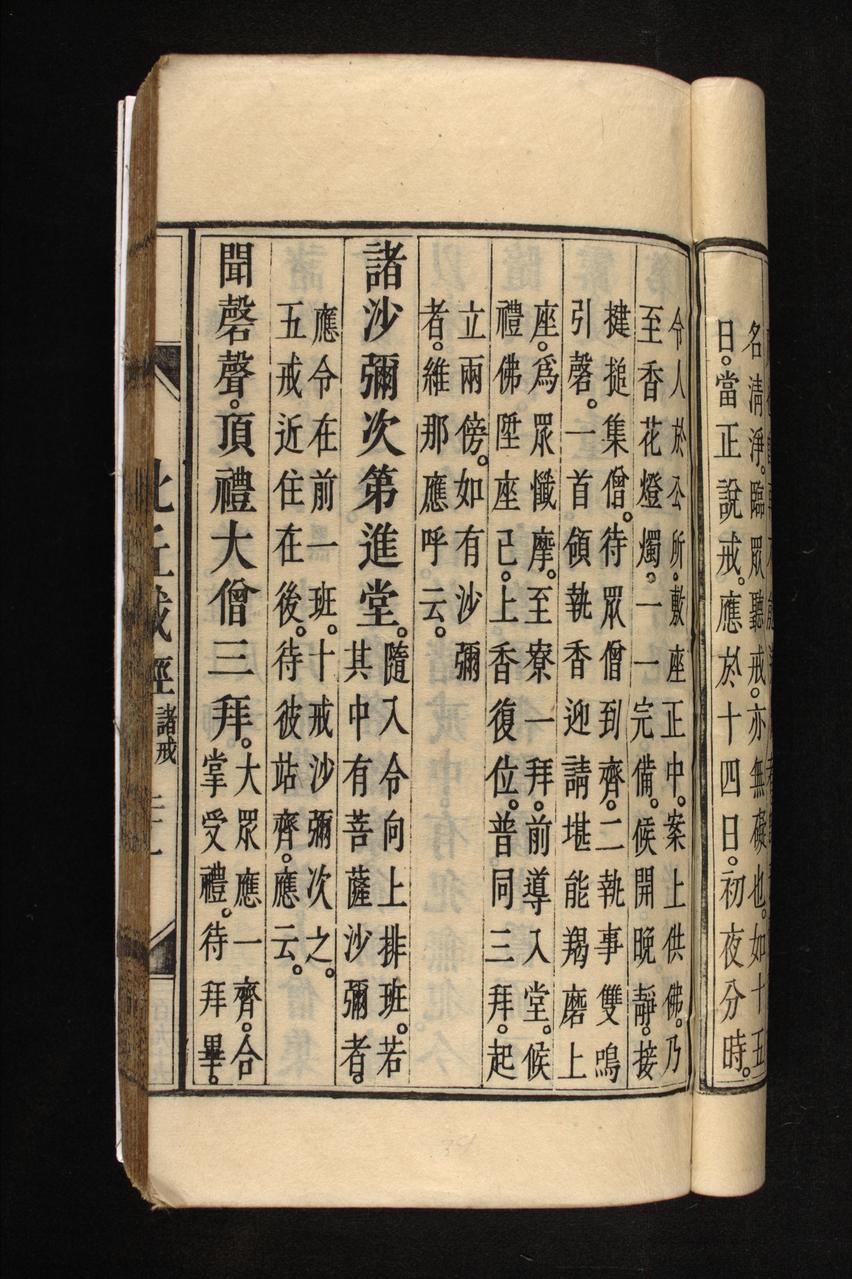 名清淨。臨眾聽戒。亦無礙也。如十五
日。當正說戒。應於十四日。初夜分時。
令人於公所。敷座正中。案上供佛。乃
至香花燈燭。一一完備。候開晚靜。接
揵搥集僧。待眾僧到齊。二執事雙鳴
引磬。一首領執香迎請堪能羯磨上
座。爲眾懺摩。至寮一拜。前導入堂。候
禮佛陞座已。上香復位。普同三拜。起
立兩傍。如有沙彌
者。維那應呼云。
諸沙彌次第進堂。
隨入令向上排班。若
其中有菩薩沙彌者。
應令在前一班。十戒沙彌次之。
五戒近住在後。待彼站齊。應云。
聞磬聲。頂禮大僧三拜。
大眾應一齊。合
掌受禮。待拜畢。
比丘戒經
諸戒